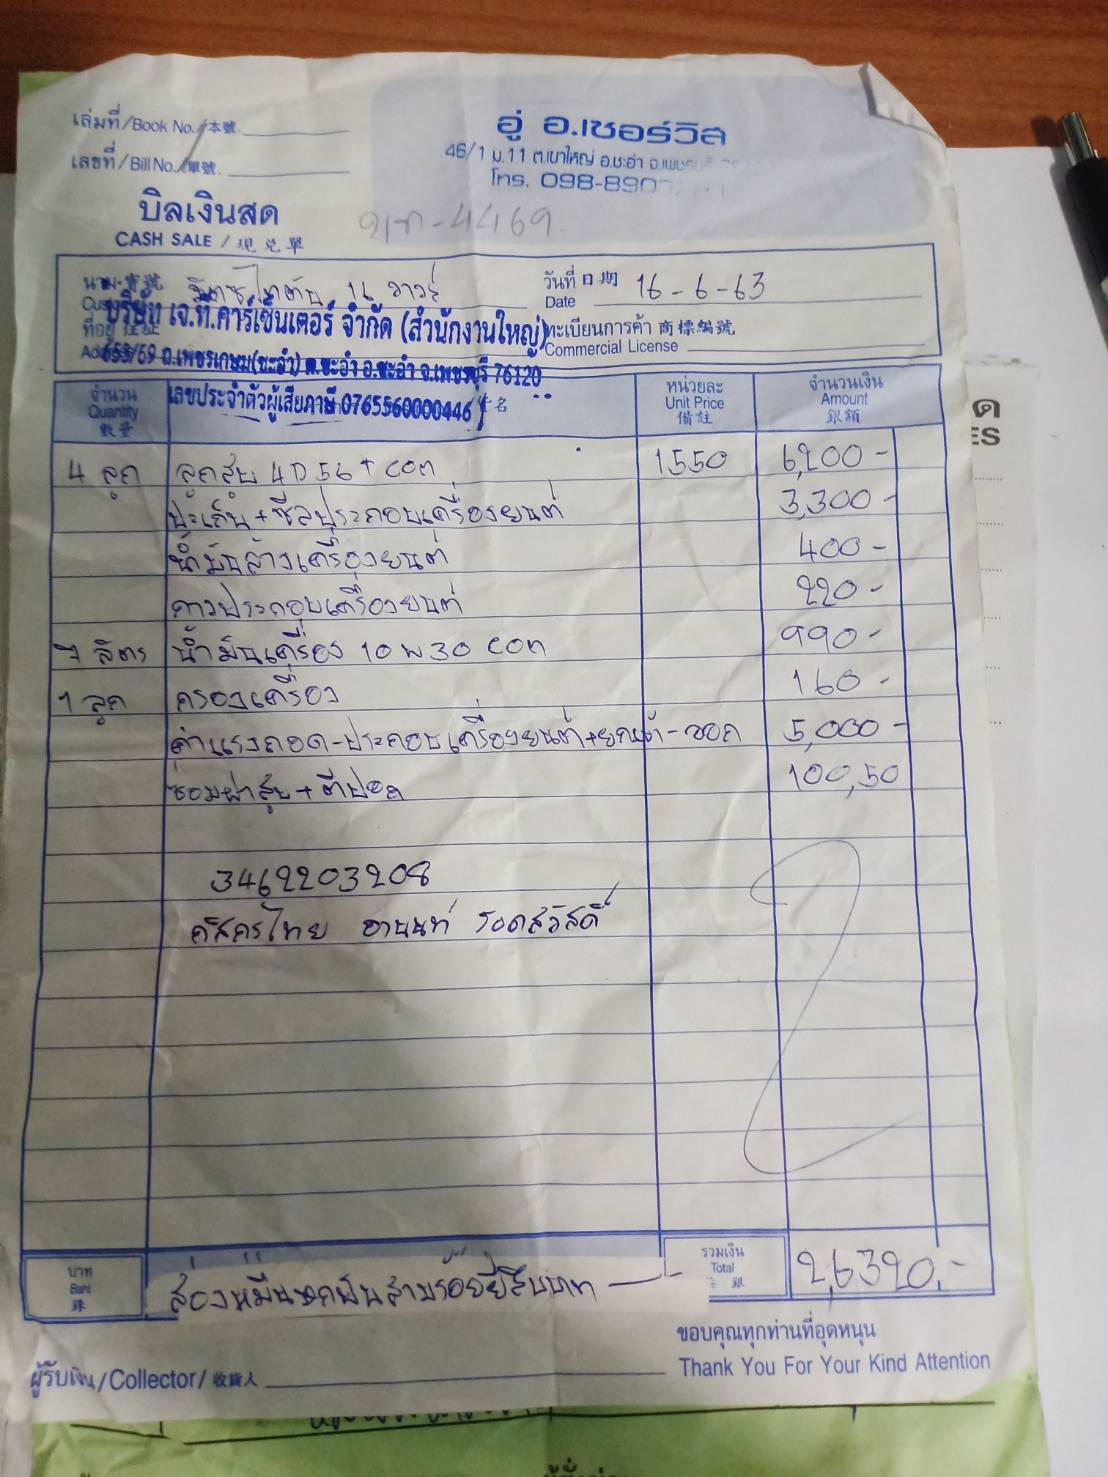 เล่มที่/Book No./本號.
อู่ อ.เซอร์วิส
46/1 ม.11 ต.เขาใหญ่ อ.ชะอำ จ.เพชรบุรี
เลขที่/Bill No./單號.
โทร. 098-890
บิลเงินสด
4469
CASH SALE / 現兌單
วันที่ 日期 16-6-63
Date
บริษัท เจ.ที.คาร์เซ็นเตอร์ จำกัด (สำนักงานใหญ่)
ทะเบียนการค้า 商標編號
Commercial License
655/69 ถ.เพชรเกษม(ชะอำ) ต.ชะอำ อ.ชะอำ จ.เพชรบุรี 76120
เลขประจำตัวผู้เสียภาษี 0765560000446
จำนวน Quantity 數量
หน่วยละ Unit Price 備註
จำนวนเงิน Amount 銀額
4 ลูก ลูกสูบ 4D56 T com 1550 6,200-
ปะเก็น+ซีลประกอบเครื่องยนต์ 3,300-
น้ำมันล้างเครื่องยนต์ 400-
กาวประกอบเครื่องยนต์ 220-
7 ลิตร น้ำมันเครื่อง 10W30 com 990-
1 ลูก กรองเครื่อง 160-
ค่าแรงถอด-ประกอบเครื่องยนต์+ยกเข้า-ออก 5,000-
ซ่อมฝาสูบ+ตีปอก 100,50
3462203208
กสิกรไทย อานนท์ รอดสวัสดิ์
บาท Baht
สองหมื่นหกพันสามร้อยยี่สิบบาท
รวมเงิน Total 26320.-
ขอบคุณทุกท่านที่อุดหนุน
ผู้รับเงิน/Collector/收貨人
Thank You For Your Kind Attention